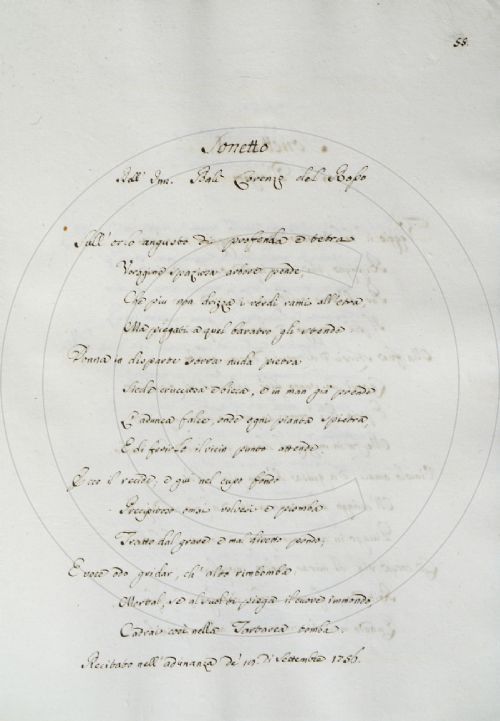 58.
Sonetto
Dell' Bali Lorenzo del Rosso
Sull' orlo angusto di profonda e tetra
Voragine spaziosa arbore pende,
Che più non drizza i verdi rami all'etra
Ma piegati a quel baratro gli stende
Donna in disparte sovra nuda pietra
Siede crucciosa e bieca, e in man già prende
L'adunca falce, onde ogni pianta spietra,
E di ferirlo il vicin punto attende
Ecco il recide, e giù nel cupo fondo
Precipitoso omai volvesi e piomba
Tratto dal grave e mal diretto pondo;
E voce odo gridar, ch' alto rimbomba:
Mortal, se al suol piega il cuore immondo
Cadrai così nella Tartarea tomba
Recitato nell'adunanza de' 19. di Settembre 1756.